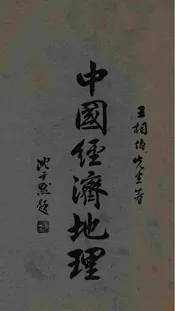 王相秦先生等
中國經濟地理
沈尹默題